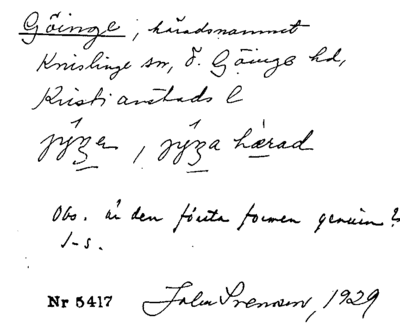 Göinge, häradsnamnet
Knislinge sn, Ö. Göinge hd,
Kristianstads l
härad
Obs. är den första formen genuin?
J-s.
Nr 5417 John Svensson, 1929